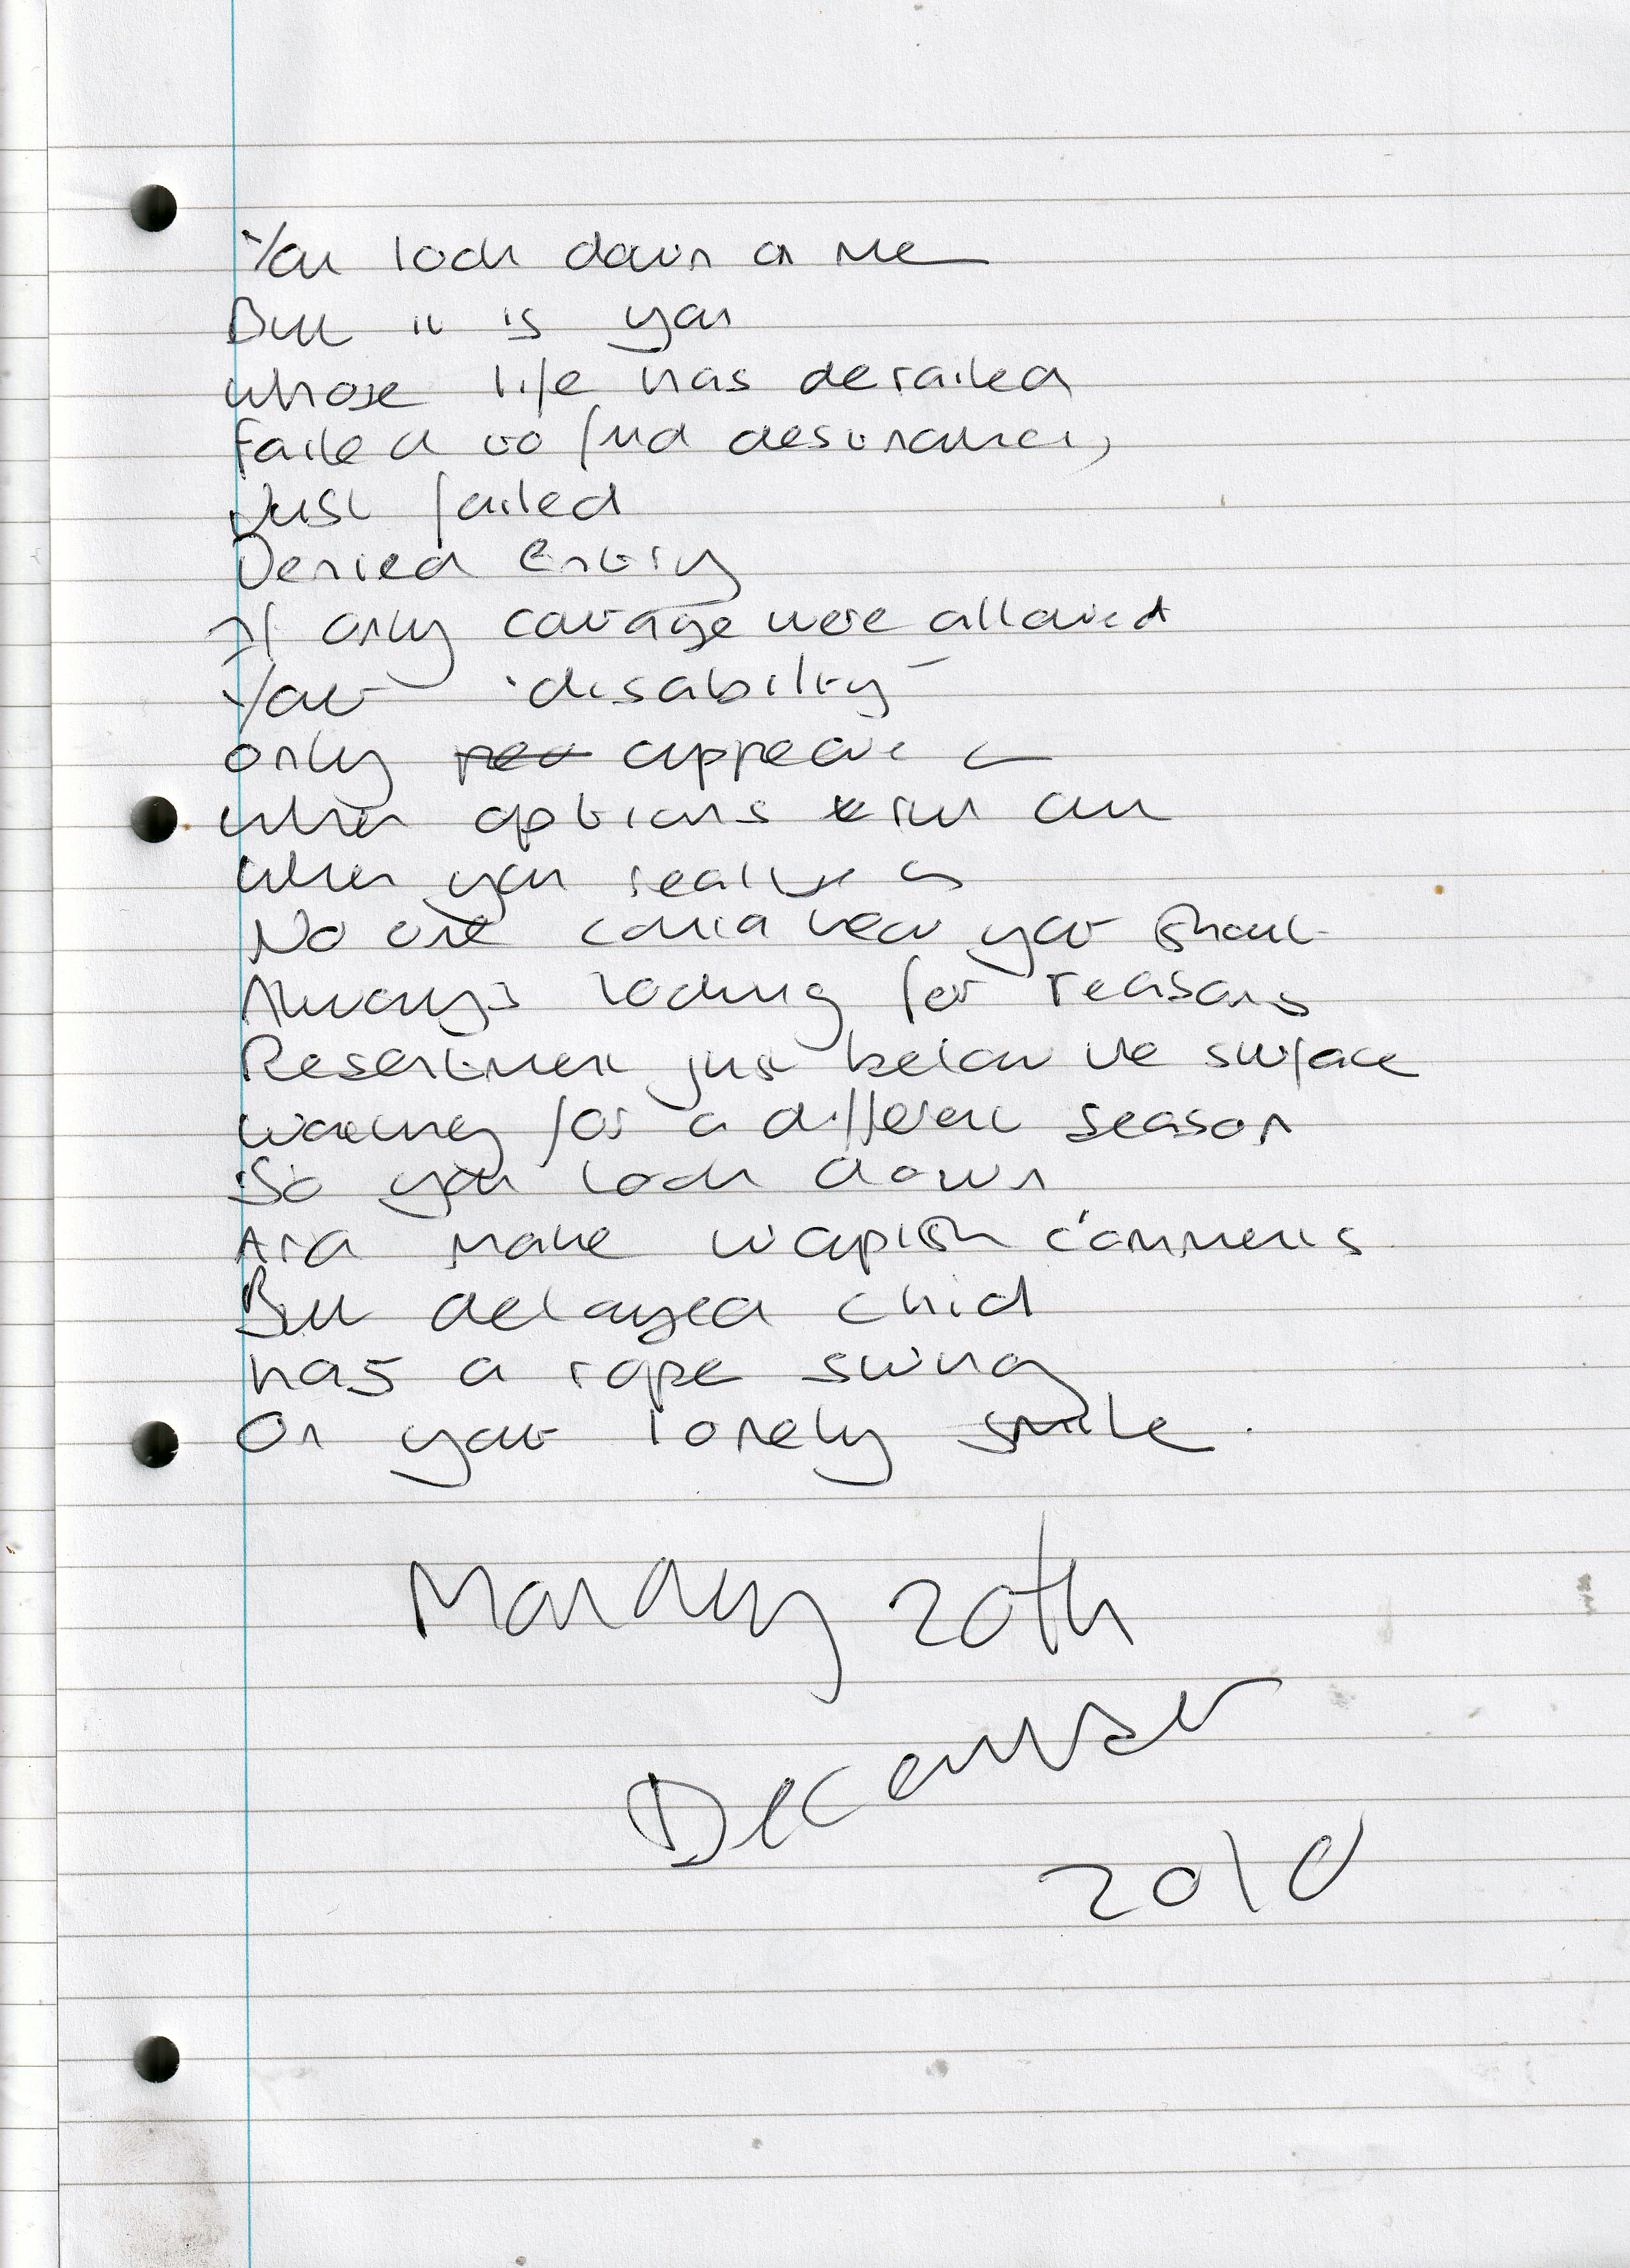 You look down on me
But it is you
whose life has derailed
Failed to find destination,
Just failed
Denied Entry
If only courage were allowed
Your disability
only appears
when options run out
When you realise
No one could hear your shout
Always looking for reasons
Resentment just below the surface
waiting for a different season
So you look down
And make waspish comments
But delayed child
has a rope swing
On your lonely smile.
Monday 20th
December
2010